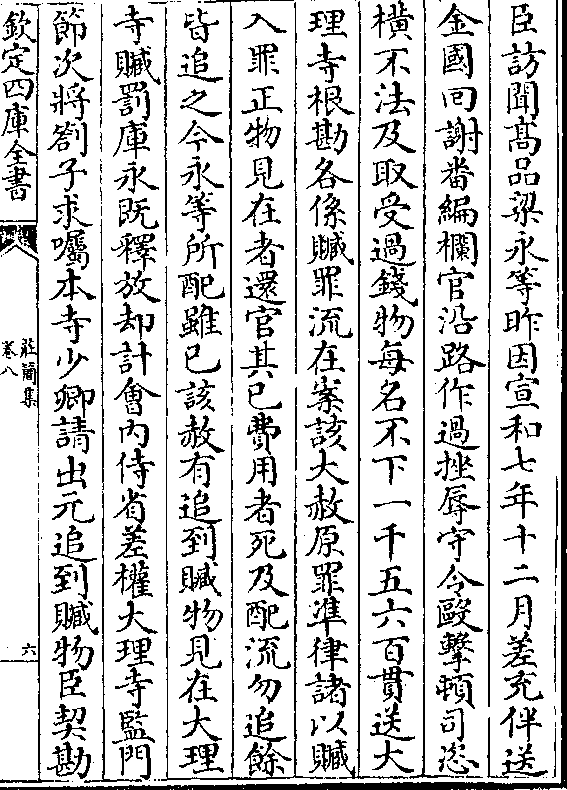 臣訪聞髙品梁永等昨因宣和七年十二月差充伴送
金國回謝番編欄官沿路作過挫辱守令毆擊頓司恣
橫不法及取受過錢物每名不下一千五六百貫送大
理寺根勘各係贓罪流在案該大赦原罪準律諸以贓
入罪正物見在者還官其已費用者死及配流勿追餘
皆追之今永等所配雖已該赦有追到贓物見在大理
寺贓罰庫永既釋放却計會內侍省差權大理寺監門
節次將劄子求囑本寺少卿請出元追到贓物臣契勘
欽定四庫全書
莊簡集
卷八
六